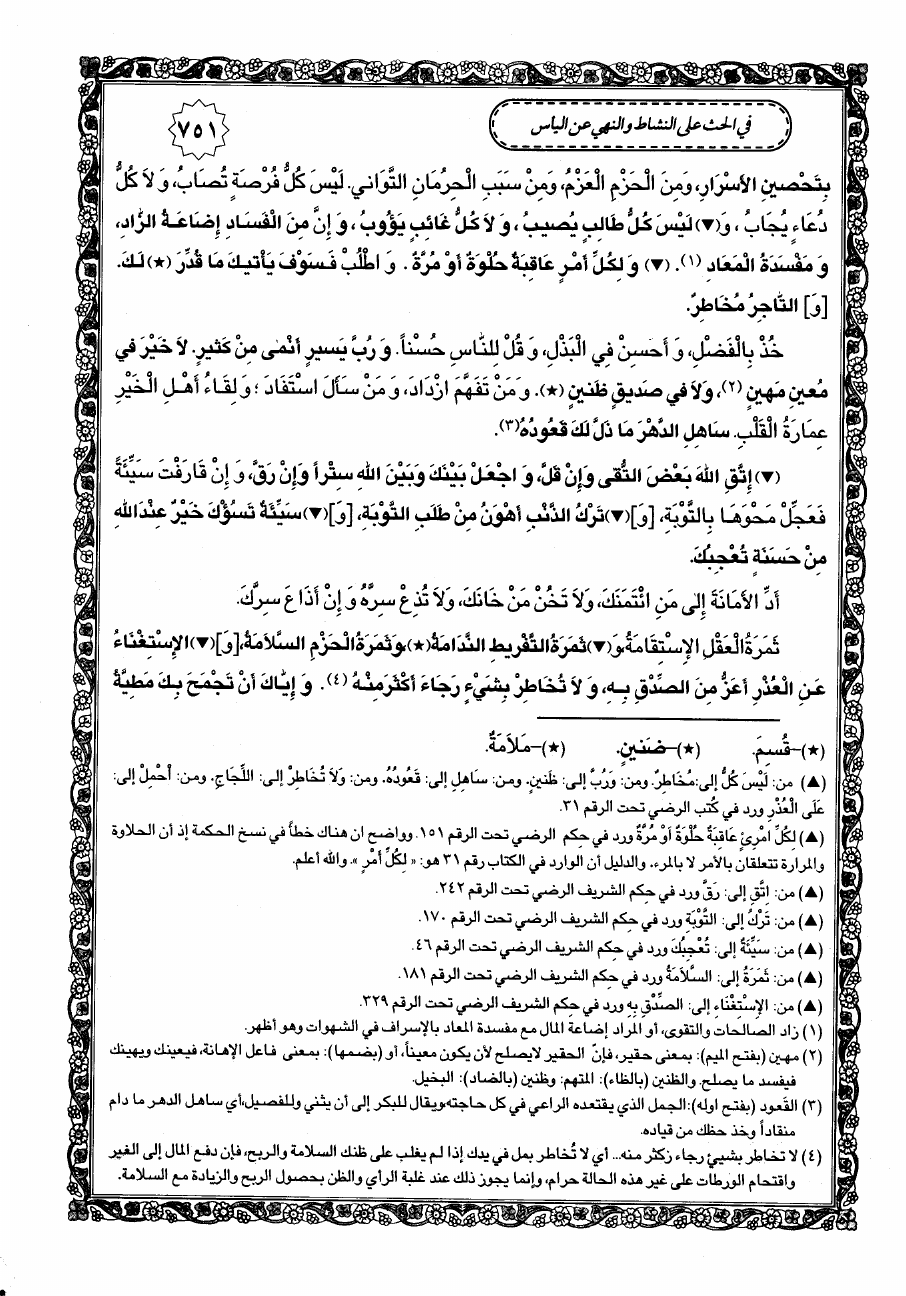 في الحث على النشاط والنهي عن اليأس
٧٥١
بِتَحْصينِ الأَسْرَارِ، وَمِنَ الْحَزْمِ الْعَزْمُ، وَمِنْ سَبَبِ الْحِرْمَانِ التَّوَاني. لَيْسَ كُلُّ فُرْصَةٍ تُصَابُ، وَ لاَ كُلُّ
دُعَاءٍ يُجَابُ، وَ(▼)لَيْسَ كُلُّ طَالِبٍ يُصيبُ، وَ لاَ كُلُّ غَائِبٍ يَؤُوبُ، وَ إِنَّ مِنَ الْفَسَادِ إِضَاعَةُ الزَّادِ،
وَ مَفْسَدَةُ الْمَعَادِ (١). (▼) وَ لِكُلِّ أَمْرٍ عَاقِبَةٌ حُلْوَةٌ أَوْ مُرَّةٌ. وَ اطْلُبْ فَسَوْفَ يَأْتيكَ مَا قُدِّرَ (★) لَكَ.
[وَ] التَّاجِرُ مُخَاطِرٌ.
خُذْ بِالْفَضْلِ، وَ أَحْسِنْ فِي الْبَذْلِ، وَ قُلْ لِلنَّاسِ حُسْناً. وَ رُبَّ يَسيرٍ أَنْمٰى مِنْ كَثيرٍ. لاَ خَيْرَ في
مُعينٍ مَهينٍ (٢)، وَلاَ في صَديقٍ ظَنينٍ (★). وَ مَنْ تَفَهَّمَ ازْدَادَ، وَ مَنْ سَأَلَ اسْتَفَادَ ؛ وَ لِقَاءُ أَهْلِ الْخَيْرِ
عِمَارَةُ الْقَلْبِ. سَاهِلِ الدَّهْرَ مَا ذَلَّ لَكَ قَعُودُهُ(٣).
(▼) إِتَّقِ اللهَ بَعْضَ التُّقٰى وَإِنْ قَلَّ، وَ اجْعَلْ بَيْنَكَ وَبَيْنَ اللهِ سِتْراً وَإِنْ رَقَّ، وَ إِنْ قَارَفْتَ سَيِّئَةً
فَعَجِّلْ مَحْوَهَا بِالتَّوْبَةِ، [وَ](▼)تَرْكُ الذَّنْبِ أَهْوَنُ مِنْ طَلَبِ التَّوْبَةِ، [وَ](▼)سَيِّئَةٌ تَسُوُّكَ خَيْرٌ عِنْدَاللهِ
مِنْ حَسَنَةٍ تُعْجِبُكَ.
أَدِّ الأَمَانَةَ إِلٰى مَنِ ائْتَمَنَكَ، وَلاَ تَخُنْ مَنْ خَانَكَ، وَلاَ تُذِعْ سِرَّهُ وَ إِنْ أَذَاعَ سِرَّكَ.
ثَمَرَةُ الْعَقْلِ الإِسْتِقَامَةُ،وَ(▼)ثَمَرَةُ التَّفْريطِ النَّدَامَةُ(★)،وَثَمَرَةُ الْحَزْمِ السَّلاَمَةُ،[وَ](▼)الإِسْتِغْنَاءُ
عَنِ الْعُذْرِ أَعَزُّ مِنَ الصِّدْقِ بِهِ، وَ لاَ تُخَاطِرْ بِشَيْءٍ رَجَاءَ أَكْثَرَ مِنْهُ (٤). وَ إِيَّاكَ أَنْ تَجْمَحَ بِكَ مَطِيَّةُ
(★)–قُسِمَ. (★)–ضَنينٍ. (★)–مَلاَمَةٌ.
(▲) من: لَيْسَ كُلُّ إلى:مُخَاطِرٌ. ومن: وَرُبَّ إلى: ظَنينٍ. ومن: سَاهِلِ إلى: قَعُودُهُ. ومن: وَلاَ تُخَاطِرْ إلى: اللَّجَاجِ. ومن: أَحْمِلْ إلى:
عَلَى الْعُذْرِ ورد في كُتب الرضي تحت الرقم ٣١.
(▲) لِكُلِّ امْرِئٍ عَاقِبَةٌ حُلْوَةٌ أَوْ مُرَّةٌ ورد في حِكم الرضي تحت الرقم ١٥١. وواضح ان هناك خطأً في نسخ الحكمة إذ أن الحلاوة
والمرارة تتعلقان بالأمر لا بالمرء. والدليل أن الوارد في الكتاب رقم ٣١ هو: « لِكُلِّ أَمْرٍ ». والله أعلم.
(▲) من: اِتَّقِ إلى: رَقَّ ورد في حِكم الشريف الرضي تحت الرقم ٢٤٢.
(▲) من: تَرْكُ إلى: التَّوْبَةِ ورد في حِكم الشريف الرضي تحت الرقم ١٧٠.
(▲) من: سَيِّئَةٌ إلى: تُعْجِبُكَ ورد في حِكم الشريف الرضي تحت الرقم ٤٦.
(▲) من: ثَمَرَةُ إلى: السَّلاَمَةُ ورد في حِكم الشريف الرضي تحت الرقم ١٨١.
(▲) من: الإِسْتِغْنَاءِ إلى: الصِّدْقِ بِهِ ورد في حِكم الشريف الرضي تحت الرقم ٣٢٩.
(١) زاد الصالحات والتقوى، أو المراد إضاعة المال مع مفسدة المعاد بالإسراف في الشهوات وهو أظهر.
(٢) مهين (بفتح الميم): بمعنى حقير، فإنّ الحقير لايصلح لأن يكون معيناً، أو (بضمها): بمعنى فاعل الإهانة، فيعينك ويهينك
فيفسد ما يصلح. والظنين (بالظاء): المتهم: وظنين (بالضاد): البخيل.
(٣) القَعود (بفتح اوله):الجمل الذي يقتعده الراعي في كل حاجته،ويقال للبكر إلى أن يثني وللفصيل،أي ساهل الدهر ما دام
منقاداً وخذ حظك من قياده.
(٤) لا تخاطر بشيئ رجاء زكثر منه... أي لا تُخاطر بمل في يدك إذا لم يغلب على ظنك السلامة والربح، فإن دفع المال إلى الغير
واقتحام الورطات على غير هذه الحالة حرام، وإنما يجوز ذلك عند غلبة الرأي والظن بحصول الربح والزيادة مع السلامة.